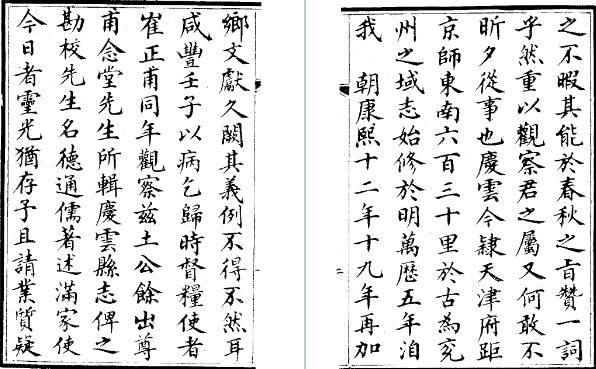 鄉文獻久闕其義例不得不然耳
咸豐壬子以病乞歸時督糧使者
崔正甫同年觀察茲土公餘出尊
甫念堂先生所輯慶雲縣志俾之
勘校先生名德通儒著述滿家使
今日者靈光猶存予且請業質疑
之不暇其能於春秋之旨贊一詞
乎然重以觀察君之屬又何敢不
昕夕從事也慶雲今隸天津府距
京師東南六百三十里於古為兗
州之域志始修於明萬歷五年洎
我 朝康熙十二年十九年再加